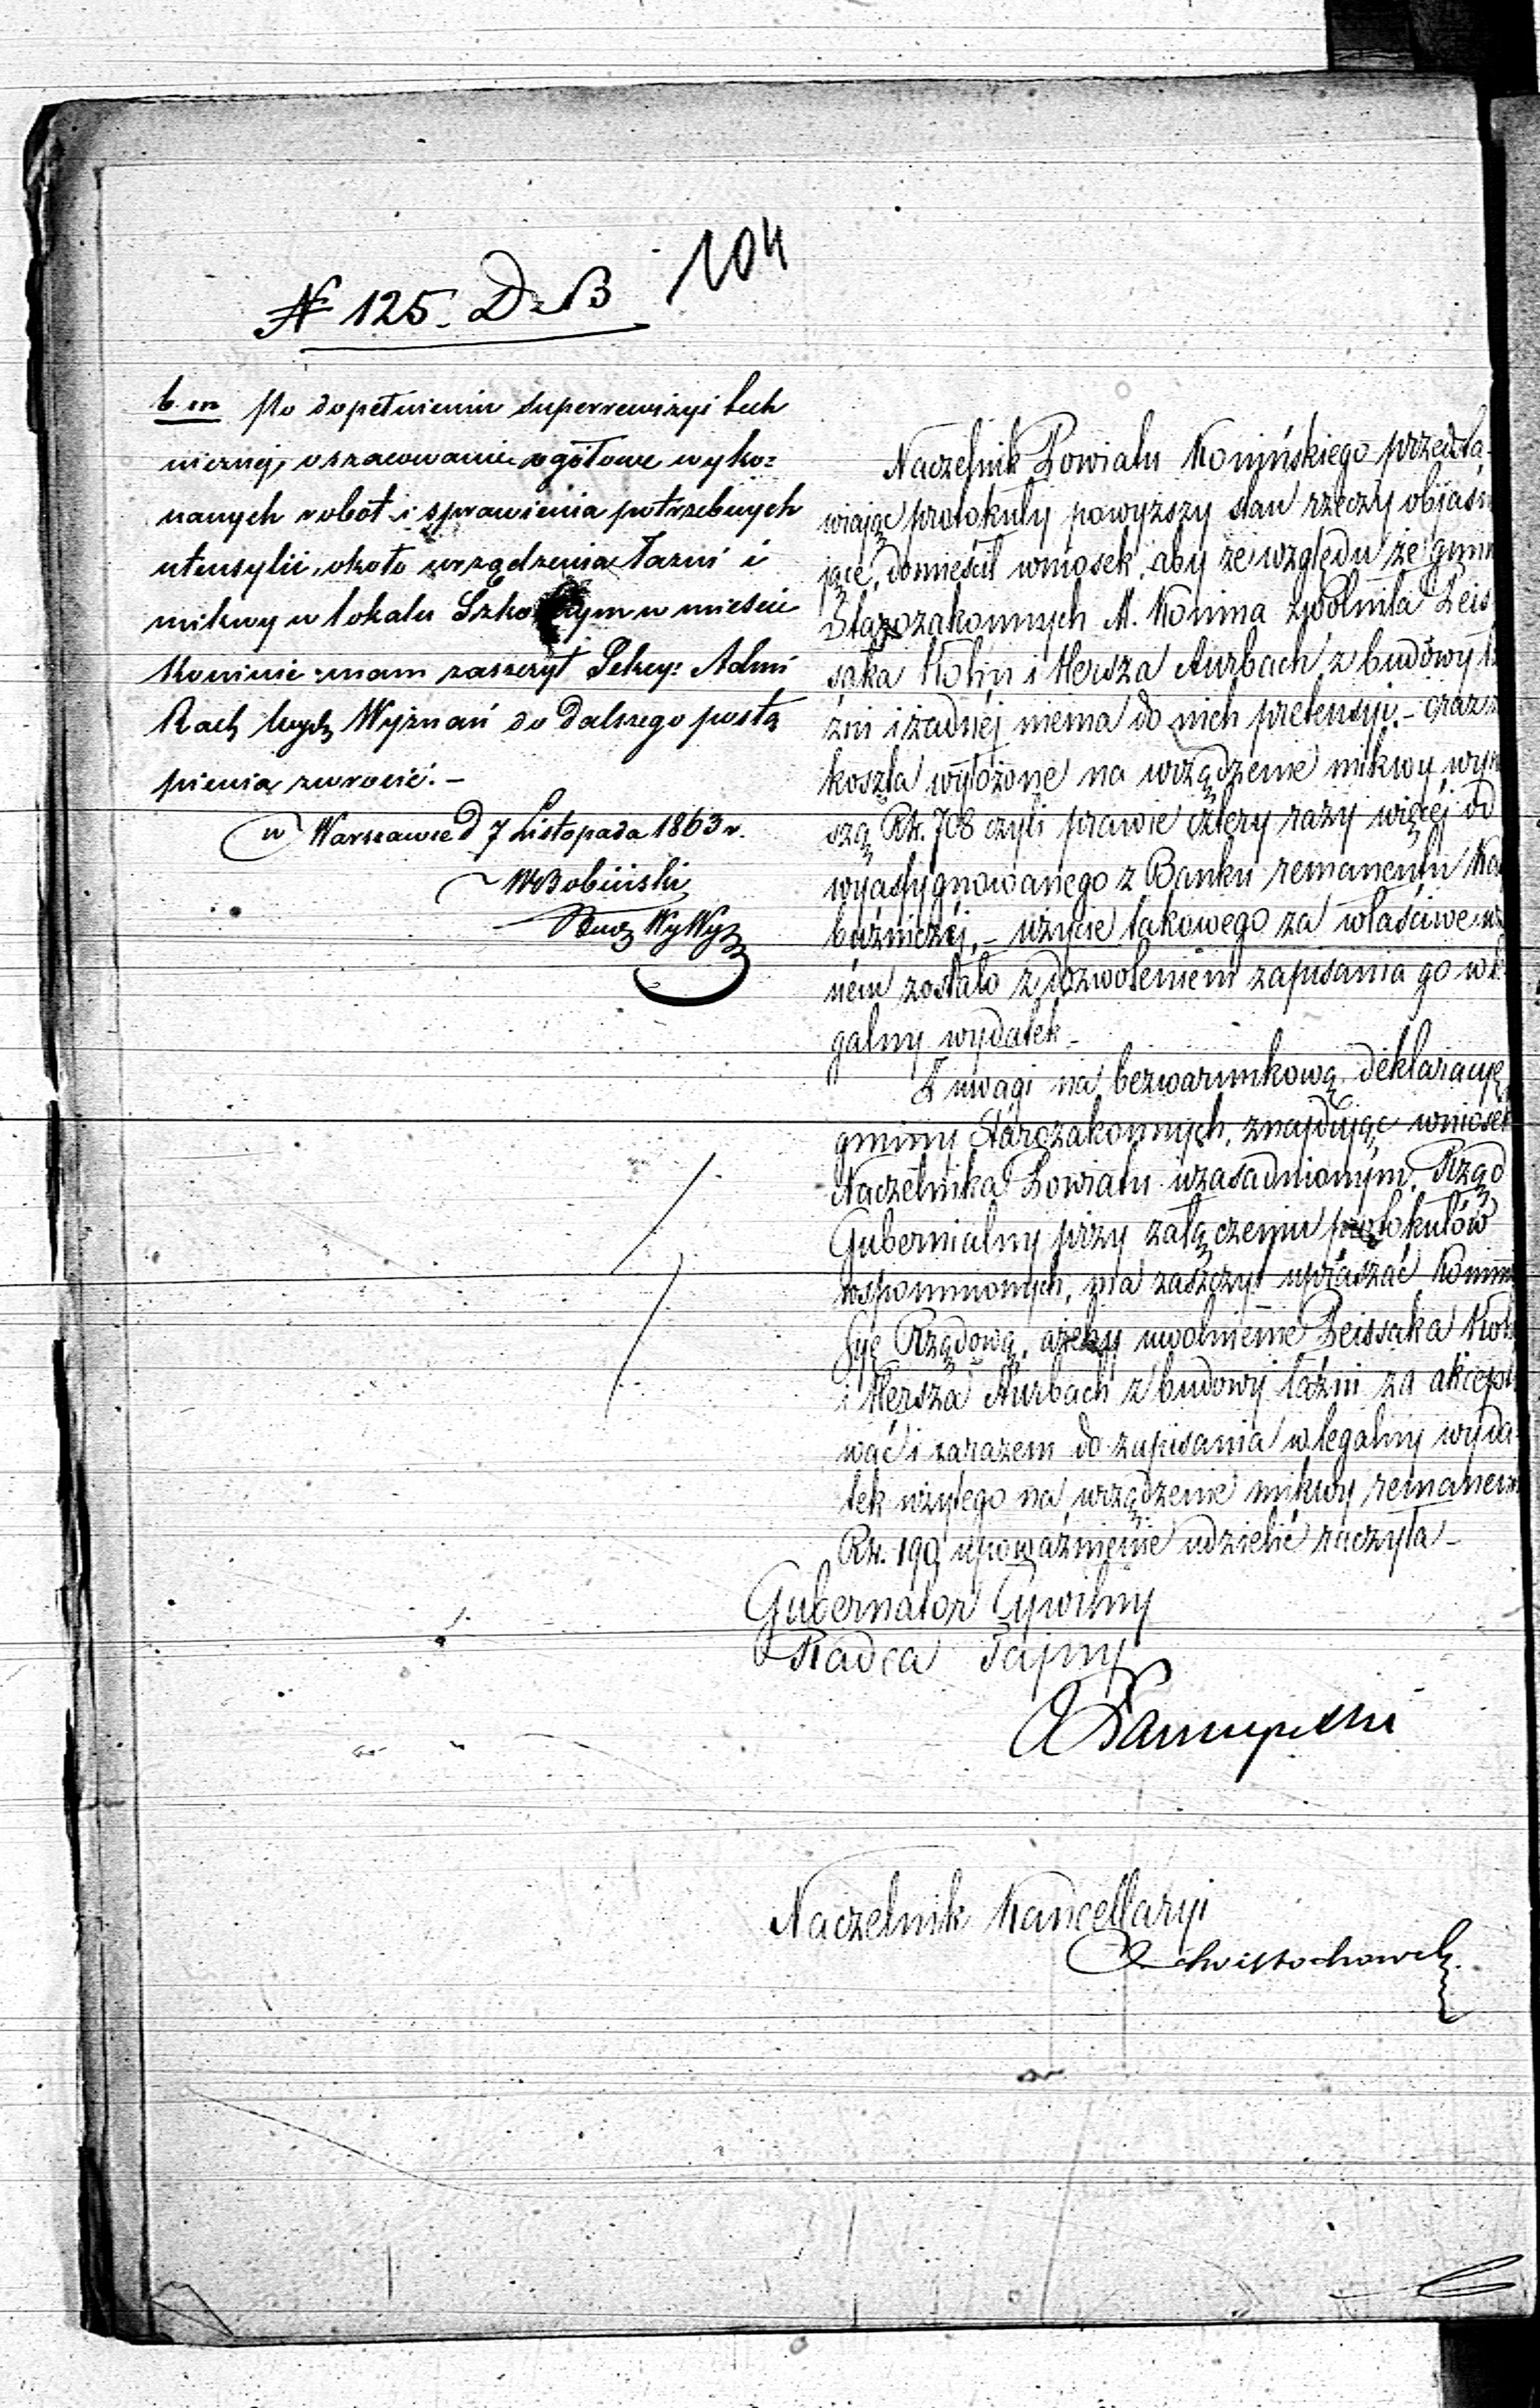 104
№ 125. D. B
b. m Po dopełnieniu superrewizyi tech
nicznej, oszacowanie ogółowe wyko=
nanych robót i sprawienia potrzebnych
utensylii, około urządzenia Łazni i
mikwy w lokalu Szkolnym w mieście
Koninie mam zaszczyt Sekcyi Admi
Rach Wyznań do dalszego postą
pienia zwrocić. –
w Warszawie d 7 Listopada 1863 r.
Naczelnik Powiatu Konińskiego przedsta-
wiając protokuły powyższy stan rzeczy objaśn
jące, domieścił wniosek, aby ze względu że gmin
Starozakonnych M. Konina zwolniła Leis
saka Kohn i Hersza Aurbach z budowy ł
źni i żadnéj niema do nich pretensyi. – oraz
koszta wyłożone na urządzenie mikwy wyn
szą Rs. 708 czyli prawie cztery razy więcéj od
wyassygnowanego z Banku remanentu Ka
bóżniczéj, – użycie takowego za właściwe uz
ném zostało z dozwoleniem zapisania go w le
galny wydatek –
Z uwagi na bezwarunkową deklaracyę
gminy Starozakonnych, znajdując wniosek
Naczelnika Powiatu uzasadnionym, Rząd
Gubernialny przy załączeniu protokułów
wspomnionych, ma zaszczyt upraszać Kommi
ssyę Rządową, ażeby uwolnienie Leissaka Koh
i Hersza Aurbach z budowy łaźni za akcept
wać i zarazem do zapisania w legalny wyda-
tek użytego na urządzenie mikwy remanen
Rs. 190 upoważnienie udzielić raczyła –
Gubernator Cywilny
Radca Tajny
Naczelnik Kancellaryi